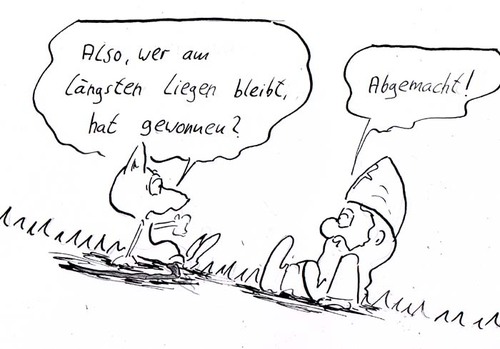 Also, wer am
längsten Liegen bleibt,
hat gewonnen?
Abgemacht!